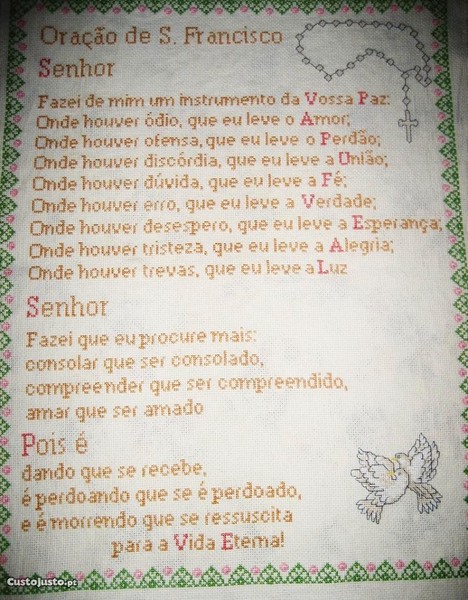 Oração de S. Francisco
Senhor
Fazei de mim um instrumento da Vossa Paz:
Onde houver ódio, que eu leve o Amor;
Onde houver ofensa, que eu leve o Perdão;
Onde houver discórdia, que eu leve a União;
Onde houver dúvida, que eu leve a Fé;
Onde houver erro, que eu leve a Verdade;
Onde houver desespero, que eu leve a Esperança;
Onde houver tristeza, que eu leve a Alegria;
Onde houver trevas, que eu leve a Luz
Senhor
Fazei que eu procure mais:
consolar que ser consolado,
compreender que ser compreendido,
amar que ser amado
Pois é
dando que se recebe,
é perdoando que se é perdoado,
e é morrendo que se ressuscita
para a Vida Eterna!
CustoJusto.pt